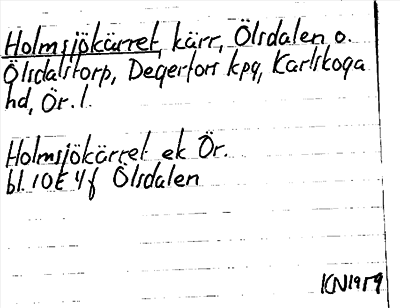 Holmsjökärret, kärr, Ölsdalen o.
Ölsdalstorp, Degerfors kpg, Karlskoga
hd, Ör. l.
Holmsjökärret ek Ör.
bl. 10E 4f Ölsdalen
KN1959